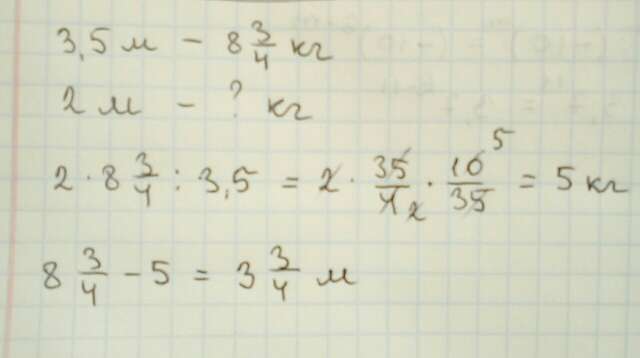 3,5 м - 8 3/4 кг
2 м - ? кг
2 · 8 3/4 : 3,5 = 2 · 35/4 2 · 10 5/35 = 5 кг
8 3/4 - 5 = 3 3/4 м